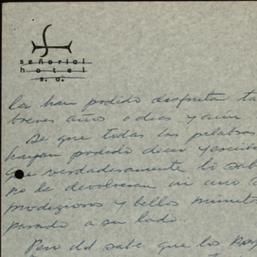 señorial
hotel
s. a.
les han podido disfrutar
breves años o dias y aun
Se que todas las palabras
hayan podido decir y escribir
que verdaderamente lo
no le devolveran ni uno
prodigiosos y bellos minutos
pasado a su lado.
Pero del sabe que los